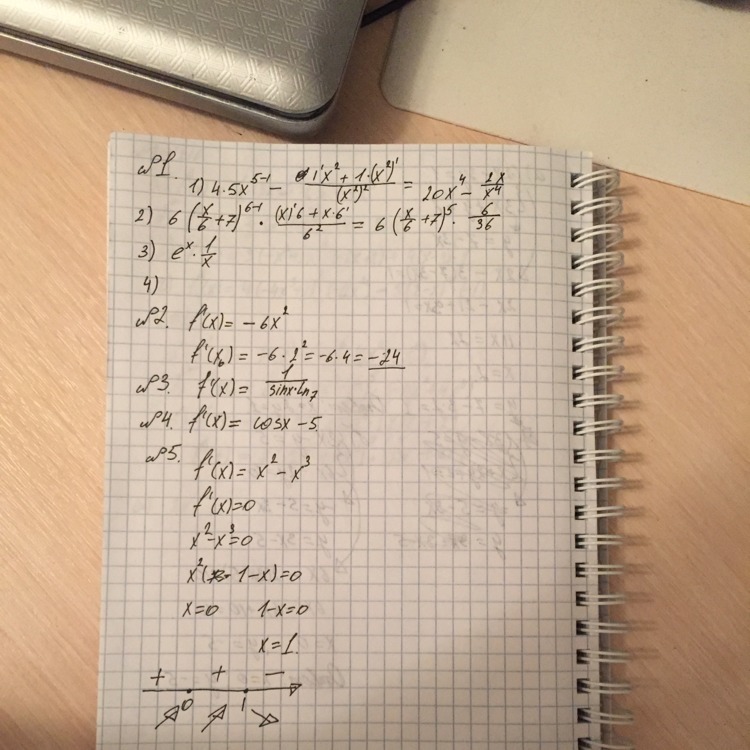 №1.
1) 4·5x^{5-1} - \frac{1'x^2+1·(x^2)'}{(x^2)^2} = 20x^4 - \frac{2x}{x^4}
2) 6(\frac{x}{6}+7)^{6-1} · \frac{(x)'6+x·6'}{6^2} = 6(\frac{x}{6}+7)^5 · \frac{6}{36}
3) e^x · \frac{1}{x}
4)
№2. f'(x) = -6x^2
f'(x_0) = -6·2^2 = -6·4 = -24
№3. f'(x) = \frac{1}{sinx·ln7}
№4. f'(x) = cosx - 5.
№5.
f'(x) = x^2 - x^3
f'(x) = 0
x^2 - x^3 = 0
x^2(1-x) = 0
x = 0 1-x = 0
x = 1.
+ + -
0 1